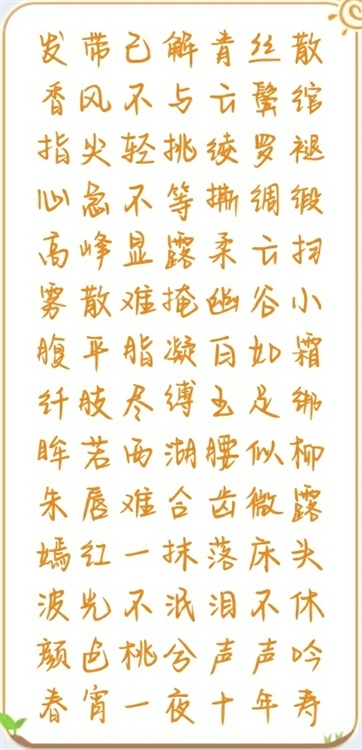 发带已解青丝散
香风不与云鬓绾
指尖轻挑绫罗褪
心急不等撕绸缎
高峰显露柔云扫
雾散难掩幽谷小
腹平脂凝白如霜
纤肢尽缚玉足绑
眸若西湖腰似柳
朱唇难合齿微露
嫣红一抹落床头
波光不泯泪不休
颜色桃兮声声吟
春宵一夜十年寿